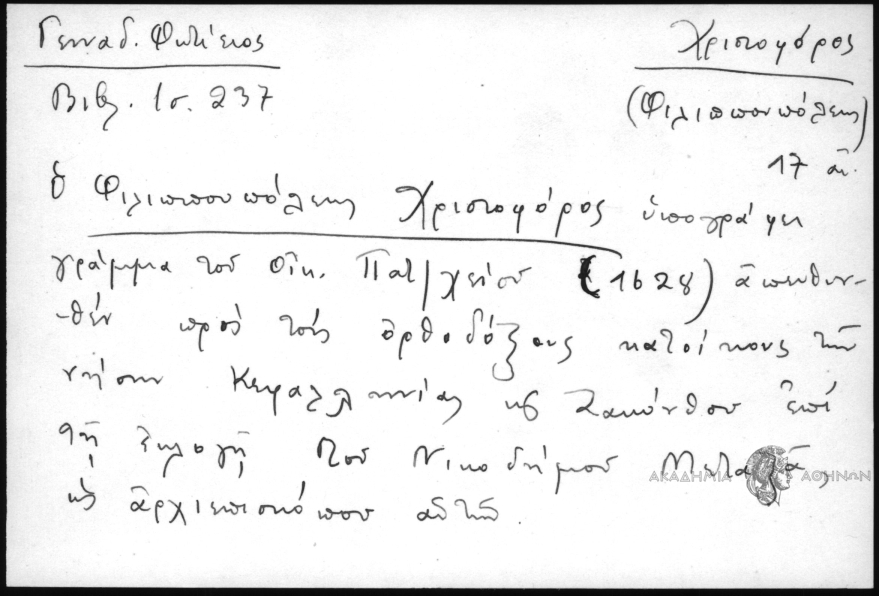 Γενναδ. Φωτίειος
Χριστοφόρος
Βιβλ. 1σ. 237
(Φιλιππουπόλεως)
17 αἰ.
ὁ Φιλιππουπόλεως Χριστοφόρος ὑπογράφει
γράμμα τοῦ Οἰκ. Πατ/χείου (1628) ἀπευθυν-
-θέν πρός τούς ὀρθοδόξους κατοίκους τῶν
νήσων Κεφαλληνίας κ Ζακύνθου ἐπί
τῇ ἐκλογῇ τοῦ Νικοδήμου Μεταξᾶ,
ὡς ἀρχιεπισκόπου αὐτῶν.
ΑΚΑΔΗΜΙΑ ΑΘΗΝΩΝ